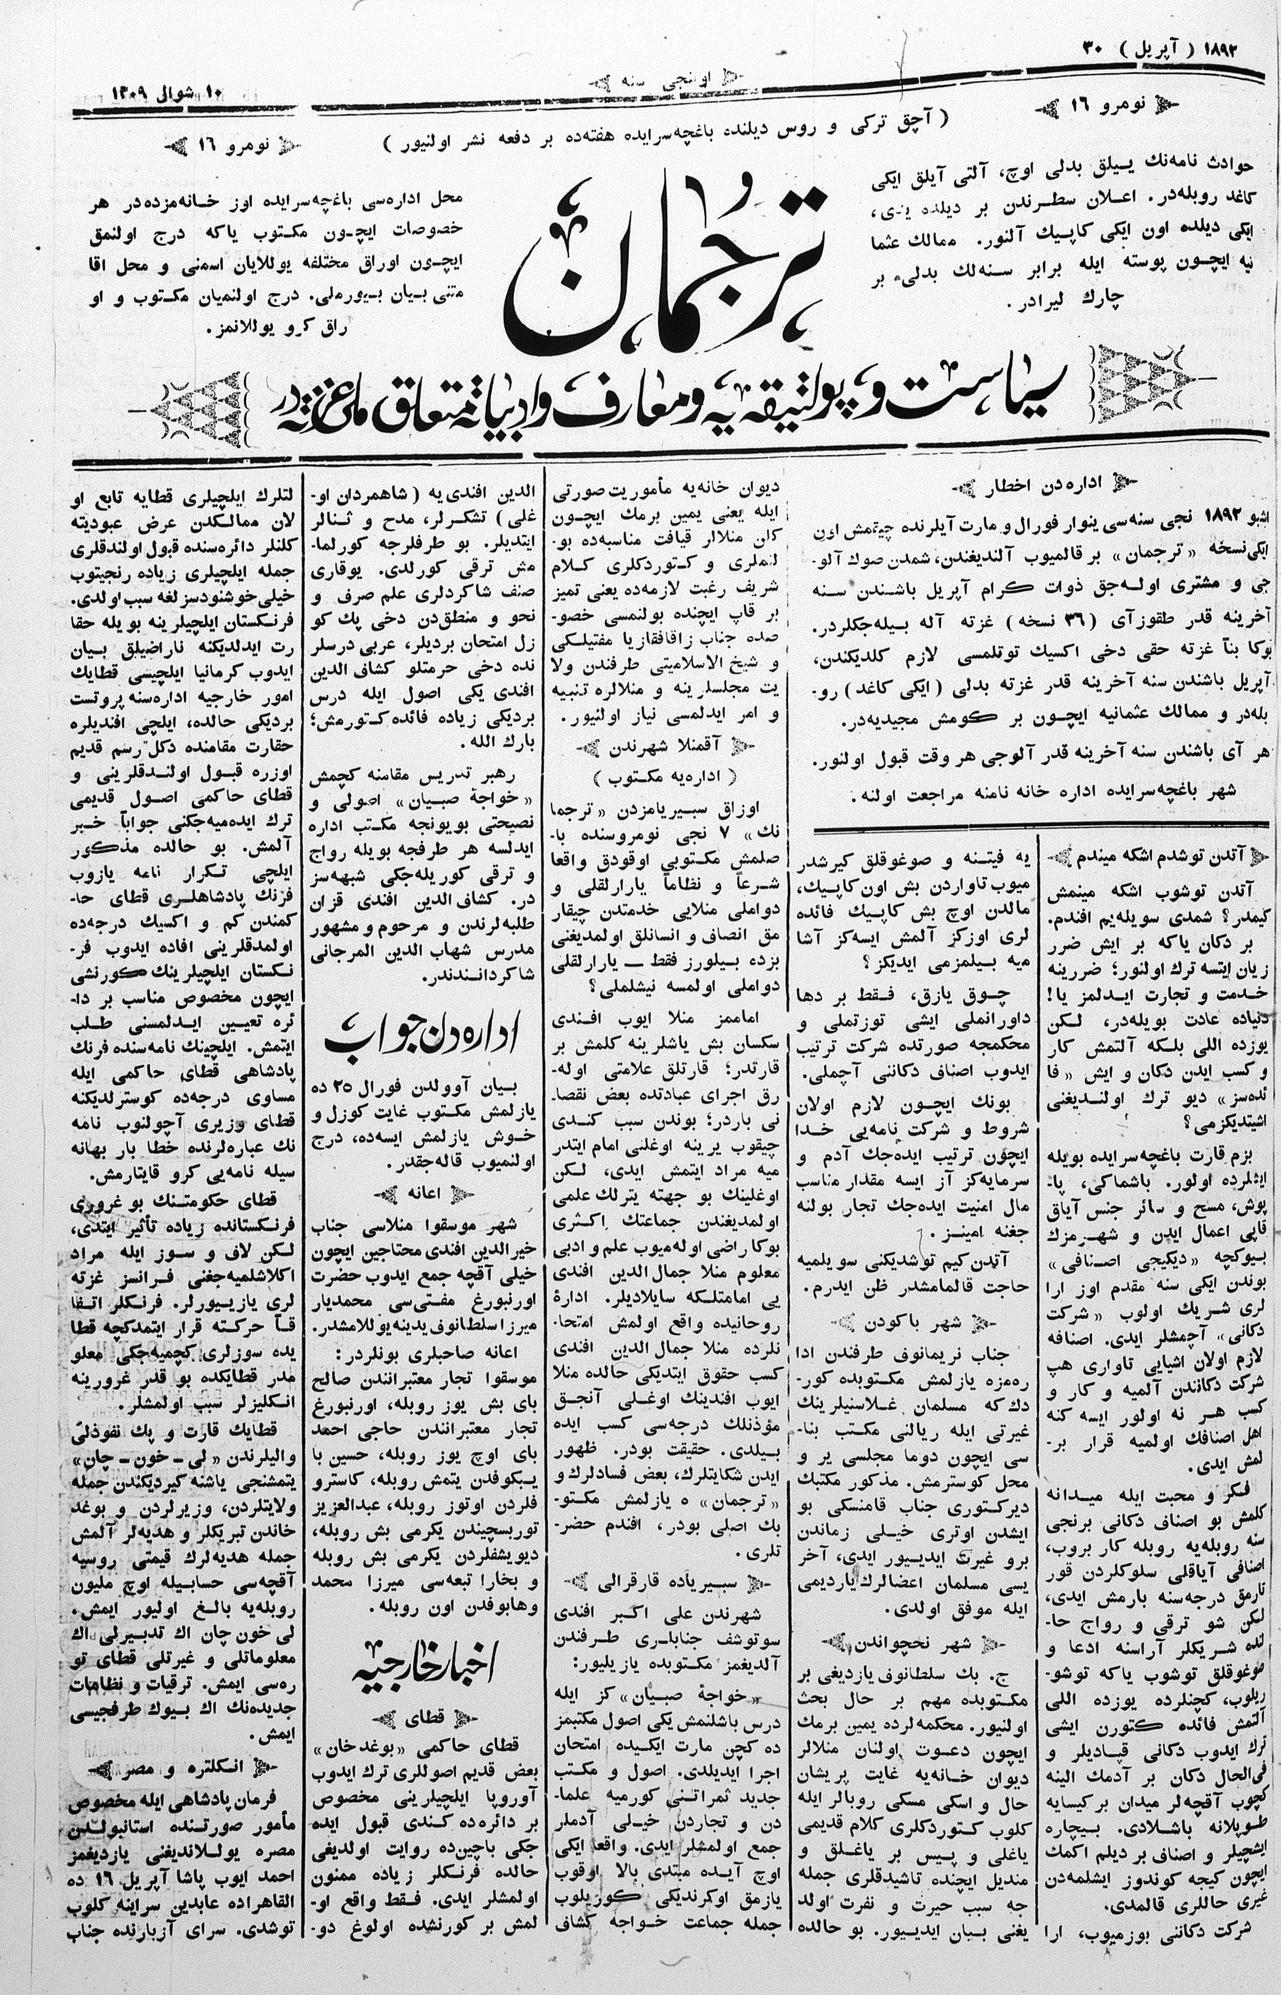 ۱۸۹۲ ( آپریل ) ۳۰
اونجی سنه
۱۰ شوال ۱۳۰۹
نومرو ۱۶
( آچق ترکی و روس دیلنده باغچه‌سرایده هفته‌ده بر دفعه نشر اولنیور )
نومرو ۱۶
حوادث نامه‌نك ییللق بدلی اوچ، آلتی آیلق ایکی
کاغد روبله‌در. اعلان سطرندن بر دیلده یدی،
ایکی دیلده اون ایکی کاپیك آلنور. ممالك عثما
نیه ایچون پوسته ایله برابر سنه‌لك بدلی بر
چارك لیرادر.
ترجمان
محل اداره‌سی باغچه‌سرایده اوز خانه‌مزده‌در هر
خصوصات ایچون مکتوب یاکه درج اولنمق
ایچون اوراق مختلفه یوللایان اسمنی و محل اقا
متنی بیان بیورملی. درج اولنمیان مکتوب و او
راق کرو یوللانمز.
سیاست و پولتیقه‌یه و معارف و ادبیاته متعلق ملی غزته‌در
اداره‌دن اخطار
اشبو ۱۸۹۲ نجی سنه‌سی ینوار فورال و مارت آیلرنده چیقمش اون
ایکی نسخه «ترجمان» بر قالمیوب آلندیغندن، شمدن صوك آلو-
جی و مشتری اوله‌جق ذوات کرام آپریل باشندن سنه
آخرینه قدر طقوز آی (۳۶ نسخه) غزته آله بیله‌جکلردر.
بوکا بنآ غزته حقی دخی اکسیك توتلمسی لازم کلدیکندن،
آپریل باشندن سنه آخرینه قدر غزته بدلی (ایکی کاغد) رو-
بله‌در و ممالك عثمانیه ایچون بر کومش مجیدیه‌در.
هر آی باشندن سنه آخرینه قدر آلوجی هر وقت قبول اولنور.
شهر باغچه‌سرایده اداره خانه نامنه مراجعت اولنه.
آتدن توشدم اشکه میندم
آتدن توشوب اشکه مینمش
کیمدر؟ شمدی سویله‌یم افندم.
بر دکان یاکه بر ایش ضرر
زیان ایتسه ترك اولنور؛ ضررینه
خدمت و تجارت ایدلمز یا!
دنیاده عادت بویله‌در، لکن
یوزده اللی بلکه آلتمش کار
و کسب ایدن دکان و ایش «فا
ئده‌سز» دیو ترك اولندیغنی
اشیتدیکزمی؟
بزم قارت باغچه‌سرایده بویله
ایشلرده اولور. باشماکی، پا-
پوش، مسح و سائر جنس آیاق
قاپی اعمال ایدن و شهرمزك
بیوکچه «دیکیجی اصنافی»
بوندن ایکی سنه مقدم اوز ارا
لری شریك اولوب «شرکت
دکانی» آچمشلر ایدی. اصنافه
لازم اولان اشیایی تاواری هپ
شرکت دکاندن آلمیه و کار و
کسب هر نه اولور ایسه کنه
اهل اصنافك اولمیه قرار بر-
لمش ایدی.
فکر و محبت ایله میدانه
کلمش بو اصناف دکانی برنجی
سنه روبله‌یه روبله کار بروب،
اصنافی آیاقلی سلوکلردن قور
تارمق درجه‌سنه بارمش ایدی،
لکن شو ترقی و رواج حا-
لنده شریکلر آراسنه ادعا و
صوغوقلق توشوب یاکه توشو-
ریلوب، کچنلرده یوزده اللی
آلتمش فائده کتورن ایشی
ترك ایدوب دکانی قپادیلر و
فی‌الحال دکان بر آدمك الینه
کچوب آقچه‌لر میدان بر کیسایه
طوپلانه باشلادی. بیچاره
ایشچیلر و اصنافی بر دیلم اکمك
ایچون کیجه کوندوز ایشلمه‌دن
غیری حاللری قالمدی.
شرکت دکاننی بوزمیوب، ارا
یه فیتنه و صوغوقلق کیرشدر
میوب تاواردن بش اون کاپیك،
مالدن اوچ بش کاپیك فائده
لری اوزکز آلمش ایسه‌کز آشا
میه بیلمزمی ایدیکز؟
چوق یازق، فقط بر دها
داورانملی ایشی توزتملی و
محکمجه صورتده شرکت ترتیب
ایدوب اصناف دکاننی آچملی.
بونك ایچون لازم اولان
شروط و شرکت نامه‌یی خدا
ایچون ترتیب ایده‌جك آدم و
سرمایه‌کز آز ایسه مقدار مناسب
مال امنیت ایده‌جك تجار بولنه
جغنه امینز.
آتدن کیم توشدیکنی سویلمیه
حاجت قالمامشدر ظن ایدرم.
شهر باکودن
جناب نریمانوف طرفندن ادا
ره‌مزه یازلمش مکتوبده کور-
دك‌که مسلمان غلاسنیلرینك
غیرتی ایله ریالنی مکتب بنا-
سی ایچون دوما مجلسی یر و
محل کوسترمش. مذکور مکتبك
دیرکتوری جناب قامنسکی بو
ایشدن اوتری خیلی زماندن
برو غیرت ایدییور ایدی، آخر
یسی مسلمان اعضالرك یاردیمی
ایله موفق اولدی.
شهر نخچواندن
ج. بك سلطانوف یازدیغی بر
مکتوبده مهم بر حال بحث
اولنیور. محکمه‌لرده یمین برمك
ایچون دعوت اولنان منلالر
دیوان خانه‌یه غایت پریشان
حال و اسکی مسکی روبالر ایله
کلوب کتوردکلری کلام قدیمی
یاغلی و پیس بر یاغلق و
مندیل ایچنده تاشیدقلری جمله
جه سبب حیرت و نفرت اولد
یغنی بیان ایدییور. بو حالده
دیوان خانه‌یه مأموریت صورتی
ایله یعنی یمین برمك ایچون
کلن منلالر قیافت مناسبه‌ده بو-
لنملری و کتوردکلری کلام
شریف رغبت لازمه‌ده یعنی تمیز
بر قاپ ایچنده بولنمسی خصو-
صده جناب زاقافقازیا مفتیلکی
و شیخ الاسلامیتی طرفندن ولا
یت مجلسلرینه و منلالره تنبیه
و امر ایدلمسی نیاز اولنیور.
آقمنلا شهرندن
( اداره‌یه مکتوب )
اوزاق سبیریامزدن «ترجما
نك» ۷ نجی نومروسنده با-
صلمش مکتوبی اوقودق واقعا
شرعاً و نظاماً یارارلقلی و
دواملی منلایی خدمتدن چیقار
مق انصاف و انسانلق اولمدیغنی
بزده بیلورز فقط — یارارلقلی
دواملی اولمسه نیشلملی؟
اماممز منلا ایوب افندی
سکسان بش یاشلرینه کلمش بر
قارتدر؛ قارتلق علامتی اوله-
رق اجرای عبادتده بعض نقصا-
نی باردر؛ بوندن سبب کندی
چیقوب یرینه اوغلنی امام ایتدر
میه مراد ایتمش ایدی، لکن
اوغلینك بو جهته یترلك علمی
اولمدیغندن جماعتك اکثری
بوکا راضی اوله‌میوب علم و ادبی
معلوم منلا جمال الدین افندی
یی امامتلکه سایلادیلر. ادارۀ
روحانیده واقع اولمش امتحا-
نلرده منلا جمال الدین افندی
کسب حقوق ایتدیکی حالده منلا
ایوب افندینك اوغلی آنجق
مؤذنلك درجه‌سی کسب ایده
بیلدی. حقیقت بودر. ظهور
ایدن شکایتلرك، بعض فسادلرك و
«ترجمان» ه یازلمش مکتو-
بك اصلی بودر، افندم حضر-
تلری.
سبیریاده قارقرالی
شهرندن علی اکبر افندی
سوتوشف جنابلری طرفندن
آلدیغمز مکتوبده یازیلیور:
«خواجۀ صبیان» کز ایله
درس باشلنمش یکی اصول مکتبمز
ده کچن مارت ایکیده امتحان
اجرا ایدیلدی. اصول و مکتب
جدید ثمراتنی کورمیه علما-
دن و تجاردن خیلی آدملر
جمع اولمشلر ایدی. واقعا ایکی
اوچ آیده مبتدی بالا اوقوب
یازمق اوکرندیکی کوزیلوب
جمله جماعت خواجه کشاف
الدین افندی‌یه (شاهمردان او-
غلی) تشکرلر، مدح و ثنالر
ایتدیلر. بو طرفلرجه کورلما-
مش ترقی کورلدی. یوقاری
صنف شاکردلری علم صرف و
نحو و منطق‌دن دخی پك کو
زل امتحان بردیلر، عربی درسلر
نده دخی حرمتلو کشاف الدین
افندی یکی اصول ایله درس
بردیکی زیاده فائده کتورمش؛
بارك الله.
رهبر تدریس مقامنه کچمش
«خواجۀ صبیان» اصولی و
نصیحتی بویونجه مکتب اداره
ایدلسه هر طرفجه بویله رواج
و ترقی کوریله‌جکی شبهه‌سز
در. کشاف الدین افندی قزان
طلبه‌لرندن و مرحوم و مشهور
مدرس شهاب الدین المرجانی
شاکردانندندر.
اداره‌دن جواب
بیان آوولدن فورال ۲۵ ده
یازلمش مکتوب غایت کوزل و
خوش یازلمش ایسه‌ده، درج
اولنمیوب قاله‌جقدر.
اعانه
شهر موسقوا منلاسی جناب
خیرالدین افندی محتاجین ایچون
خیلی آقچه جمع ایدوب حضرت
اورنبورغ مفتی‌سی محمدیار
میرزا سلطانوف یدینه یوللامشدر.
اعانه صاحبلری بونلردر:
موسقوا تجار معتبرانندن صالح
بای بش یوز روبله، اورنبورغ
تجار معتبرانندن حاجی احمد
بای اوچ یوز روبله، حسین با
یبکوفدن یتمش روبله، کاسترو
فلردن اوتوز روبله، عبدالعزیز
توربسچیندن یکرمی بش روبله،
دیویشفلردن یکرمی بش روبله
و بخارا تبعه‌سی میرزا محمد
وهابوفدن اون روبله.
اخبار خارجیه
قطای
قطای حاکمی «بوغدخان»
بعض قدیم اصوللری ترك ایدوب
آوروپا ایلچیلرینی مخصوص
بر دائره‌ده کندی قبول ایده
جکی باچین‌ده روایت اولدیغی
حالده فرنکلر زیاده ممنون
اولمشلر ایدی. فقط واقع او-
لمش بر کورنشده اولوغ دو-
لتلرك ایلچیلری قطایه تابع او
لان ممالکدن عرض عبودیته
کلنلر دائره‌سنده قبول اولندقلری
جمله ایلچیلری زیاده رنجیتوب
خیلی خوشنودسزلغه سبب اولدی.
فرنکستان ایلچیلرینه بویله حقا
رت ایدلدیکنه ناراضیلق بیان
ایدوب کرمانیا ایلچیسی قطایك
امور خارجیه اداره‌سنه پروتست
بردیکی حالده، ایلچی افندیلره
حقارت مقامنده دکل رسم قدیم
اوزره قبول اولندقلرینی و
قطای حاکمی اصول قدیمی
ترك ایده‌میه‌جکنی جواباً خبر
آلمش. بو حالده مذکور
ایلچی تکرار نامه یازوب
فرنك پادشاهلری قطای حا-
کمندن کم و اکسیك درجه‌ده
اولمدقلرینی افاده ایدوب فر-
نکستان ایلچیلرینك کورنشی
ایچون مخصوص مناسب بر دا-
ئره تعیین ایدلمسنی طلب
ایتمش. ایلچینك نامه‌سنده فرنك
پادشاهی قطای حاکمی ایله
مساوی درجه‌ده کوسترلدیکنه
قطای وزیری آچولنوب نامه
نك عباره‌لرنده خطا بار بهانه
سیله نامه‌یی کرو قایتارمش.
قطای حکومتنك بو غروری
فرنکستانده زیاده تأثیر ایتدی،
لکن لاف و سوز ایله مراد
اکلاشلمیه‌جغنی فرانسز غزته
لری یازییورلر. فرنکلر اتفا
قاً حرکته قرار ایتمدکچه قطا
یده سوزلری کچمیه‌جکی معلو
مدر قطایکده بو قدر غرورینه
انکلیزلر سبب اولمشلر.
قطایك قارت و پك نفوذلی
والیلرندن «لی - خون - چان»
یتمشنجی یاشنه کیردیکندن جمله
ولایتلردن، وزیرلردن و بوغد
خاندن تبریکلر و هدیه‌لر آلمش
جمله هدیه‌لرك قیمتی روسیه
آقچه‌سی حسابیله اوچ ملیون
روبله‌یه بالغ اولیور ایمش.
لی خون چان اك تدبیرلی اك
معلوماتلی و غیرتلی قطای تو
ره‌سی ایمش. ترقیات و نظامات
جدیده‌نك اك بیوك طرفجیسی
ایمش.
انکلتره و مصر
فرمان پادشاهی ایله مخصوص
مأمور صورتنده استانبولدن
مصره یوللاندیغنی یازدیغمز
احمد ایوب پاشا آپریل ۱۶ ده
القاهراده عابدین سراینه کلوب
توشدی. سرای آزبارنده جناب